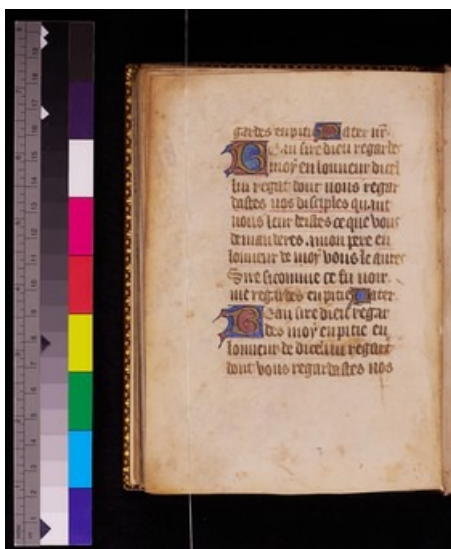 gardes en pitie Pater nr̄.
Beau sire dieu regarde
moy en lonneur dicel
lui regart dont nous regar
dastes nos disciples quant
nous leur deistes ce que vous
demanderes a mon pere en
lonneur de moy vous le aures
Sire si comme ce fu voir
me regardes en pitie Pater.
Beau sire dieu regar
des moy en pitie en
lonneur de dicellui regart
dont vous regardastes nos